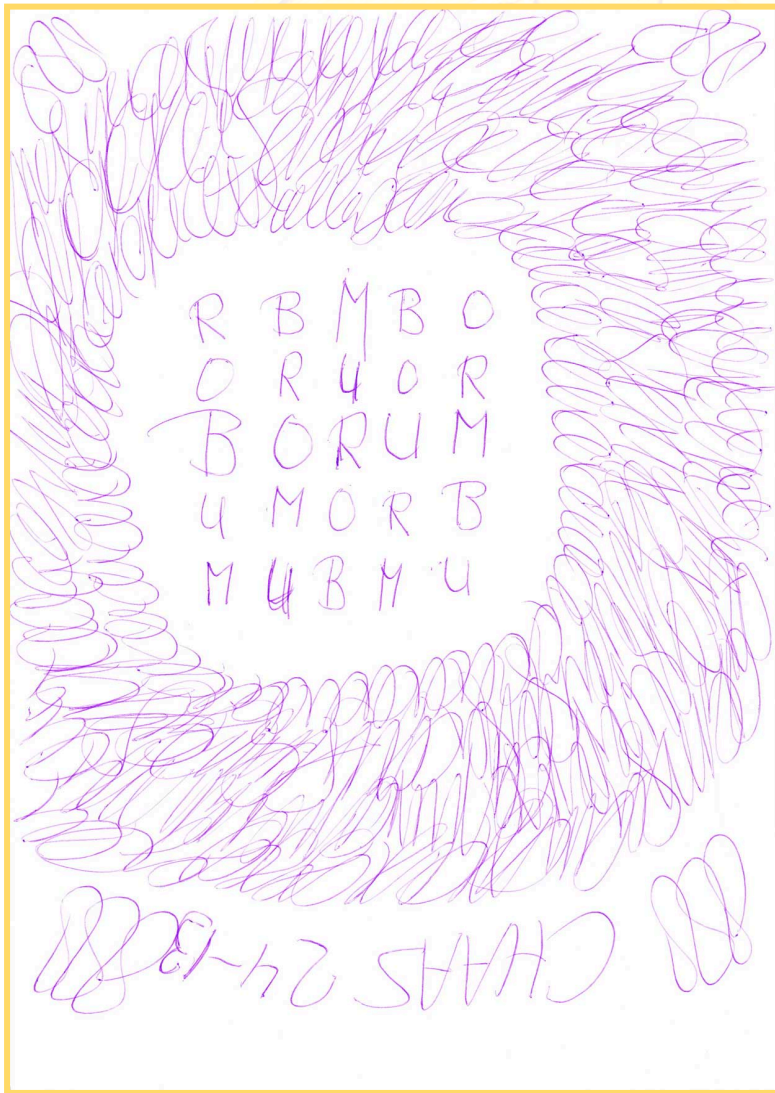 R B M B O
O R U O R
B O R U M
U M O R B
M U B M U
CHAAS 24-13